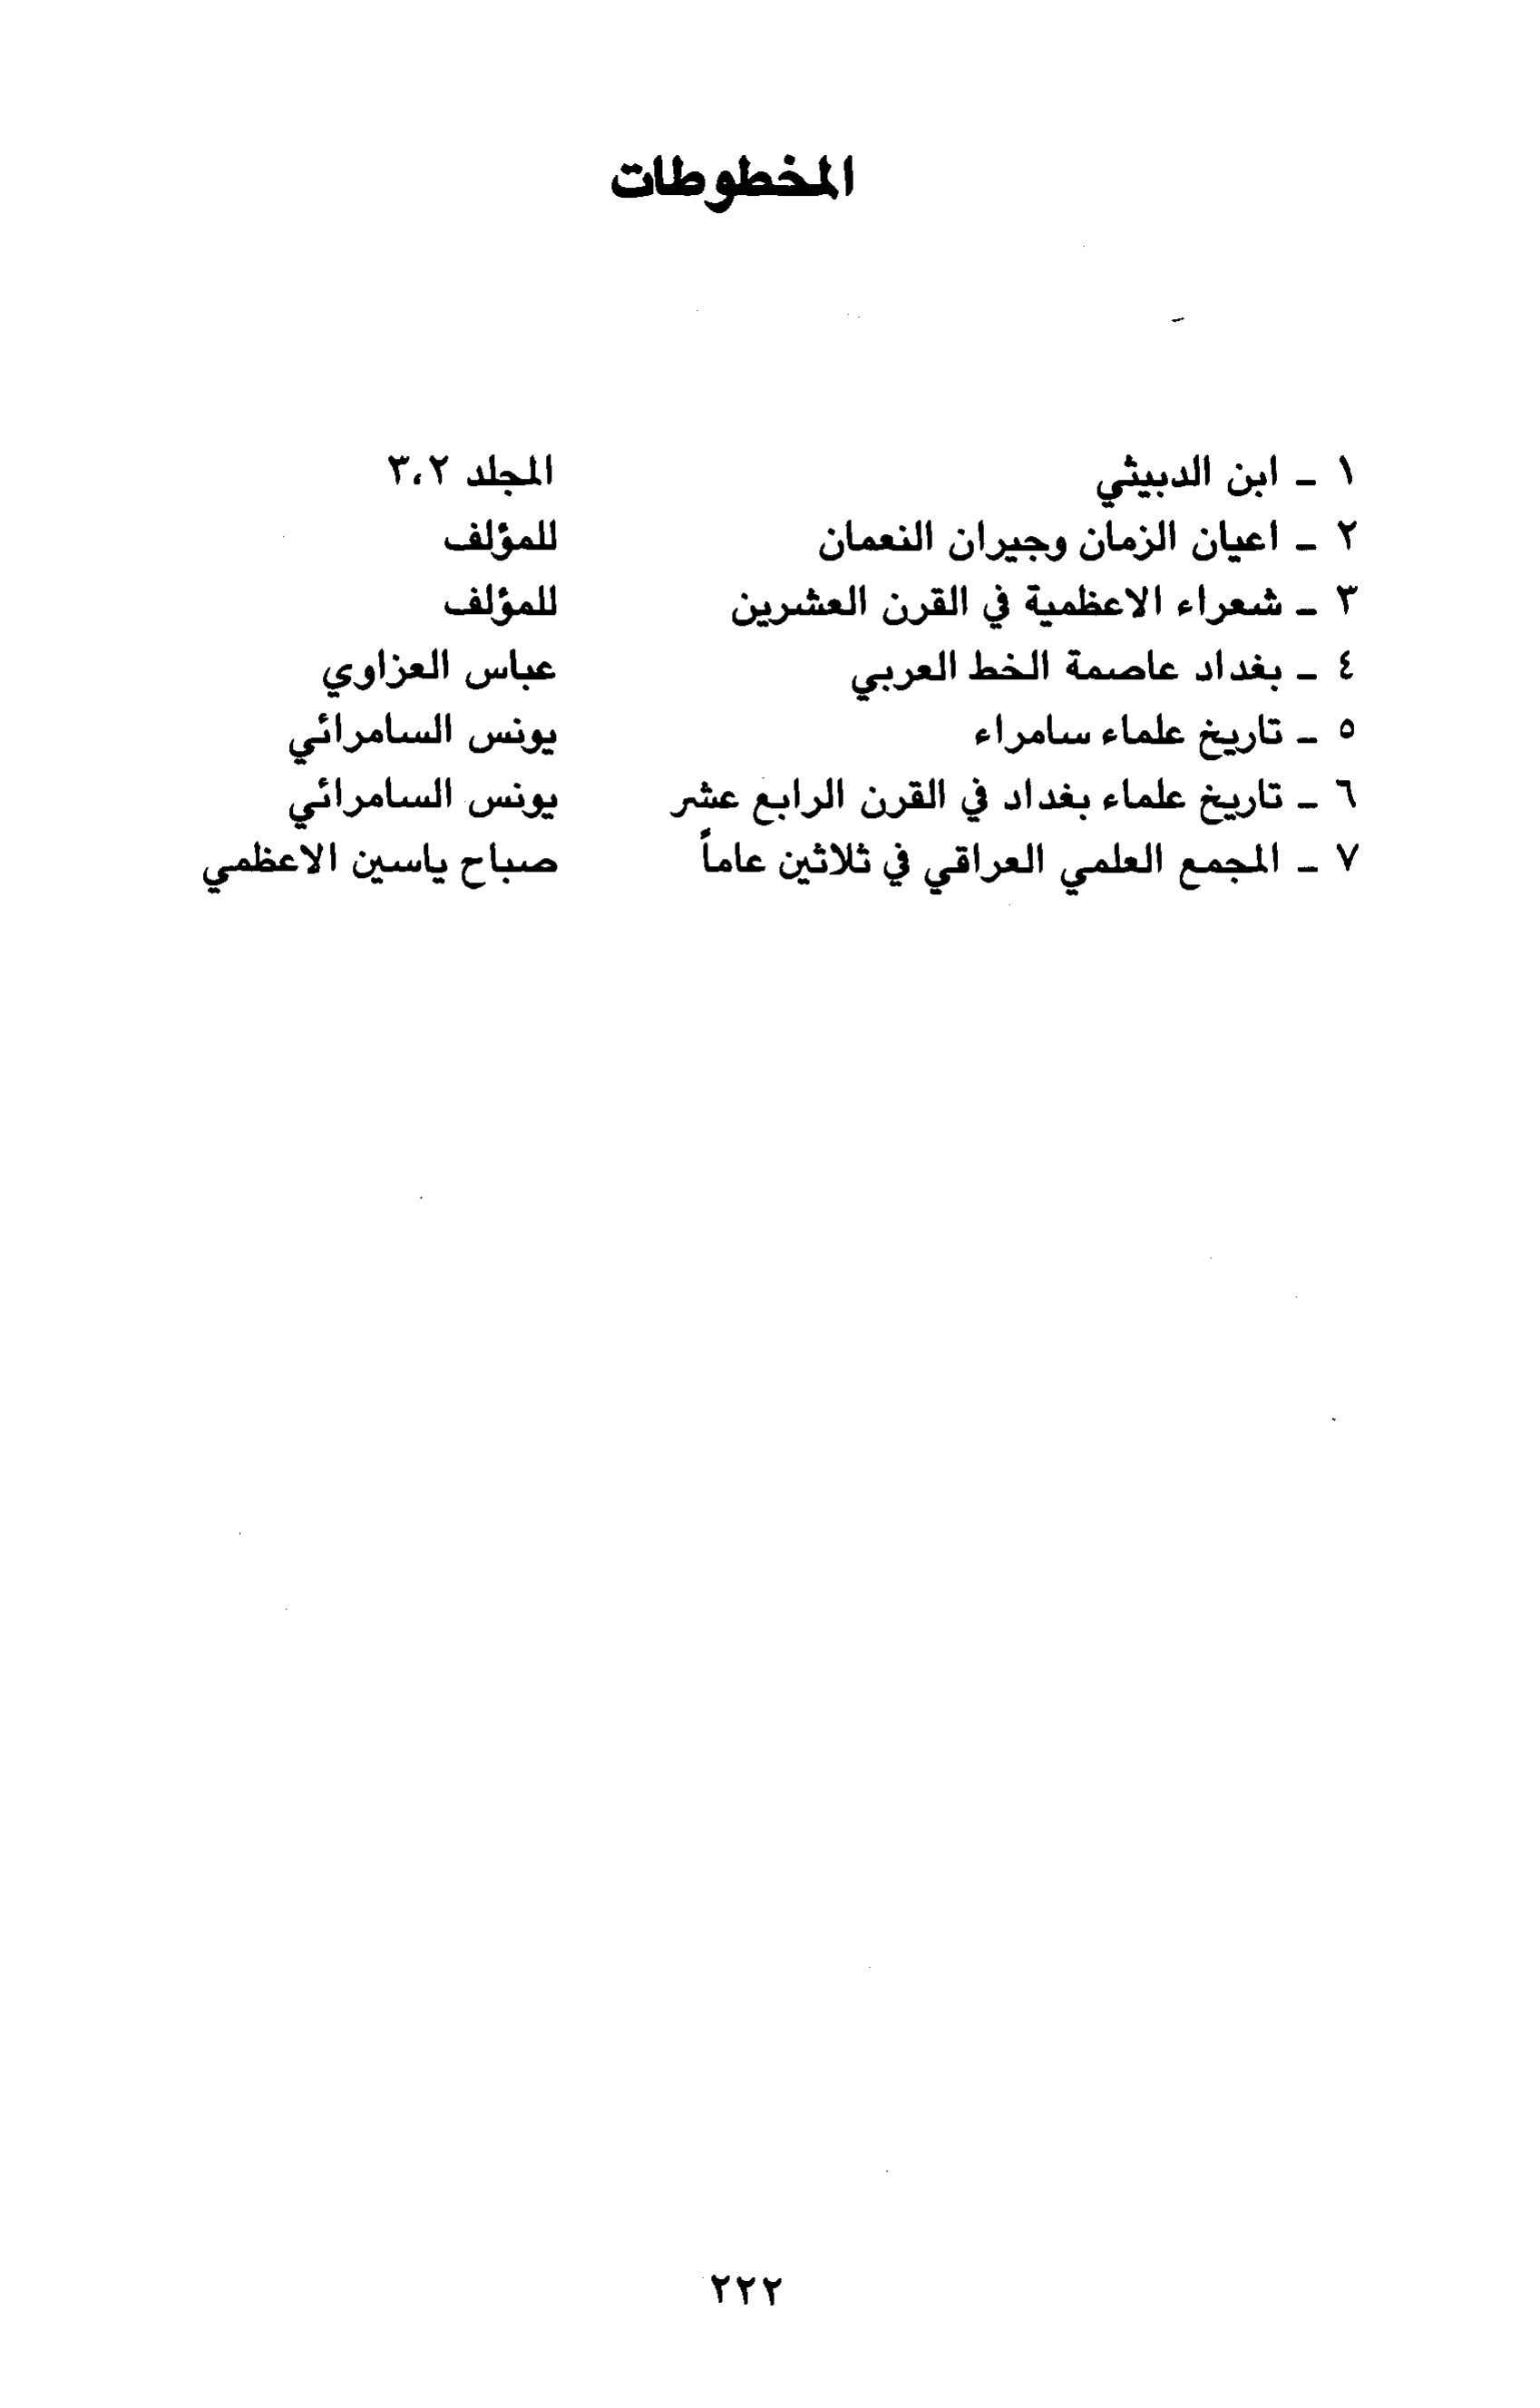 المخطوطات
١ - ابن الدبيثي المجلد ٢،٣
٢ - اعيان الزمان وجيران النعمان للمؤلف
٣ - شعراء الاعظمية في القرن العشرين للمؤلف
٤ - بغداد عاصمة الخط العربي عباس العزاوي
٥ - تاريخ علماء سامراء يونس السامرائي
٦ - تاريخ علماء بغداد في القرن الرابع عشر يونس السامرائي
٧ - المجمع العلمي العراقي في ثلاثين عاماً صباح ياسين الاعظمي
٢٢٢